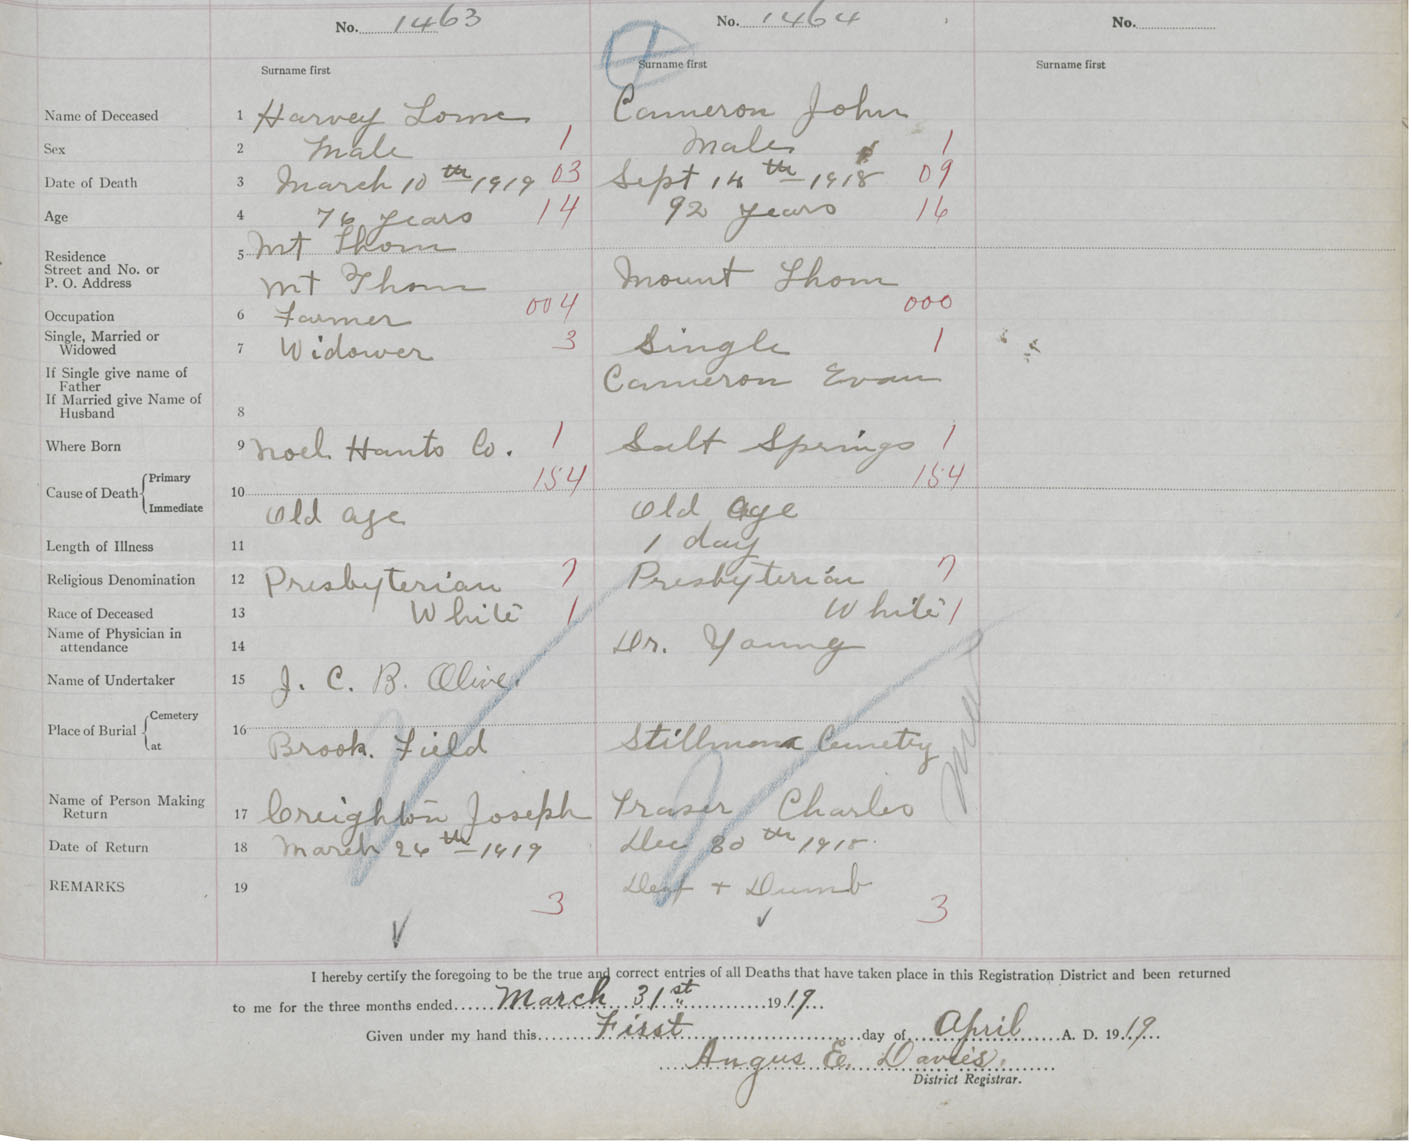 No. 1463 No. 1464 No.
Surname first Surname first Surname first
Name of Deceased 1 Harvey Lorne Cameron John
Sex 2 Male 1 Male 1
Date of Death 3 March 10th 1919 03 Sept 14th 1918 09
Age 4 76 years 14 92 years 16
5 Mt Thom
Residence
Street and No. or
P. O. Address Mt Thom Mount Thom
Occupation 6 Farmer 004 000
Single, Married or
Widowed 7 Widower 3 Single 1
If Single give name of
Father Cameron Evan
If Married give Name of
Husband 8
Where Born 9 Noel Hants Co. 1 Salt Springs 1
Cause of Death Primary 10 154 154
Immediate Old age Old Age
Length of Illness 11 1 day
Religious Denomination 12 Presbyterian 7 Presbyterian 7
Race of Deceased 13 White 1 White 1
Name of Physician in
attendance 14 Dr. Young
Name of Undertaker 15 J. C. B. Olive.
Place of Burial Cemetery 16
at Brook. Field Stillman Cemetry
Name of Person Making
Return 17 Creighton Joseph Fraser Charles
Date of Return 18 March 26th 1919 Dec 30th 1918.
REMARKS 19 Deaf + Dumb
3 3
I hereby certify the foregoing to be the true and correct entries of all Deaths that have taken place in this Registration District and been returned
to me for the three months ended March 31st 1919
Given under my hand this First day of April A. D. 1919
Angus E. Davies.
District Registrar.